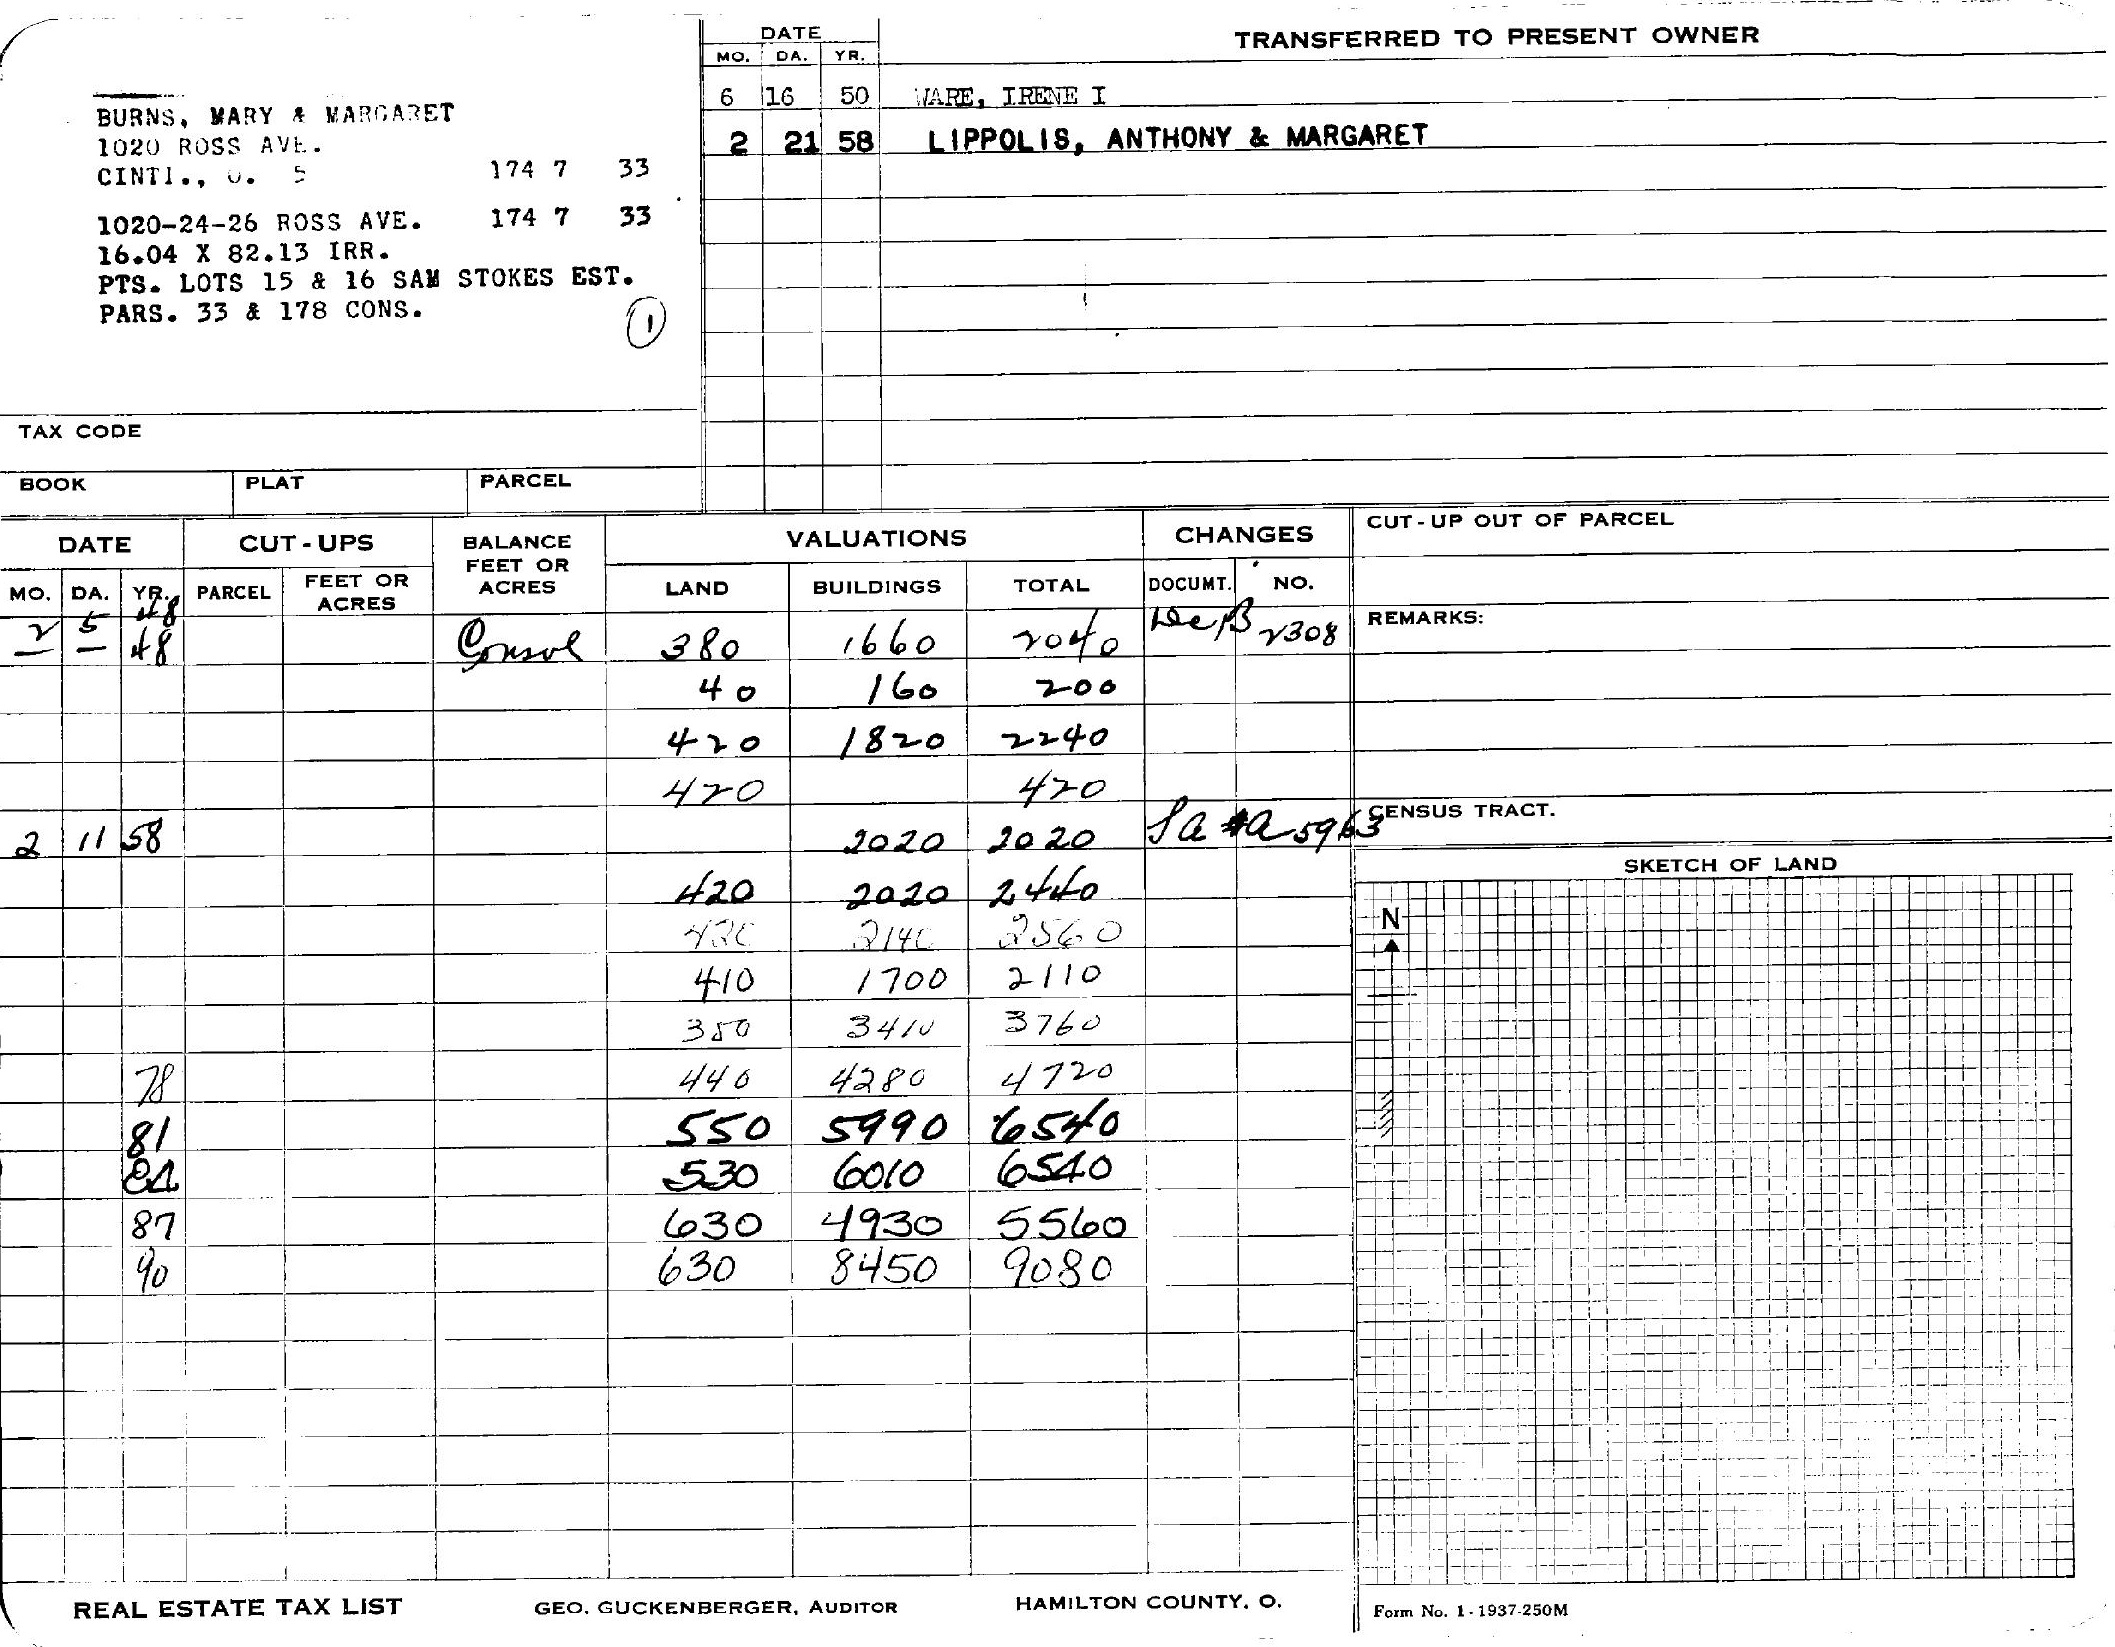 BURNS, MARY & MARGARET
1020 ROSS AVE.
CINTI., O. 5 174 7 33
1020-24-26 ROSS AVE. 174 7 33
16.04 X 82.13 IRR.
PTS. LOTS 15 & 16 SAM STOKES EST.
PARS. 33 & 178 CONS.
1
TAX CODE
BOOK PLAT PARCEL
DATE TRANSFERRED TO PRESENT OWNER
MO. DA. YR.
6 16 50 WARE, IRENE I
2 21 58 LIPPOLIS, ANTHONY & MARGARET
DATE CUT-UPS BALANCE FEET OR ACRES VALUATIONS CHANGES
MO. DA. YR. PARCEL FEET OR ACRES LAND BUILDINGS TOTAL DOCUMT. NO.
2 5 48
— — 48 Consol 380 1660 2040 2308
40 160 200
420 1820 2240
420 420
2 11 58 2020 2020 5963
420 2020 2440
420 2140 2560
410 1700 2110
350 3410 3760
78 440 4280 4720
81 550 5990 6540
84 530 6010 6540
87 630 4930 5560
90 630 8450 9080
CUT-UP OUT OF PARCEL
REMARKS:
CENSUS TRACT.
SKETCH OF LAND
N
REAL ESTATE TAX LIST GEO. GUCKENBERGER, AUDITOR HAMILTON COUNTY, O. Form No. 1-1937-250M